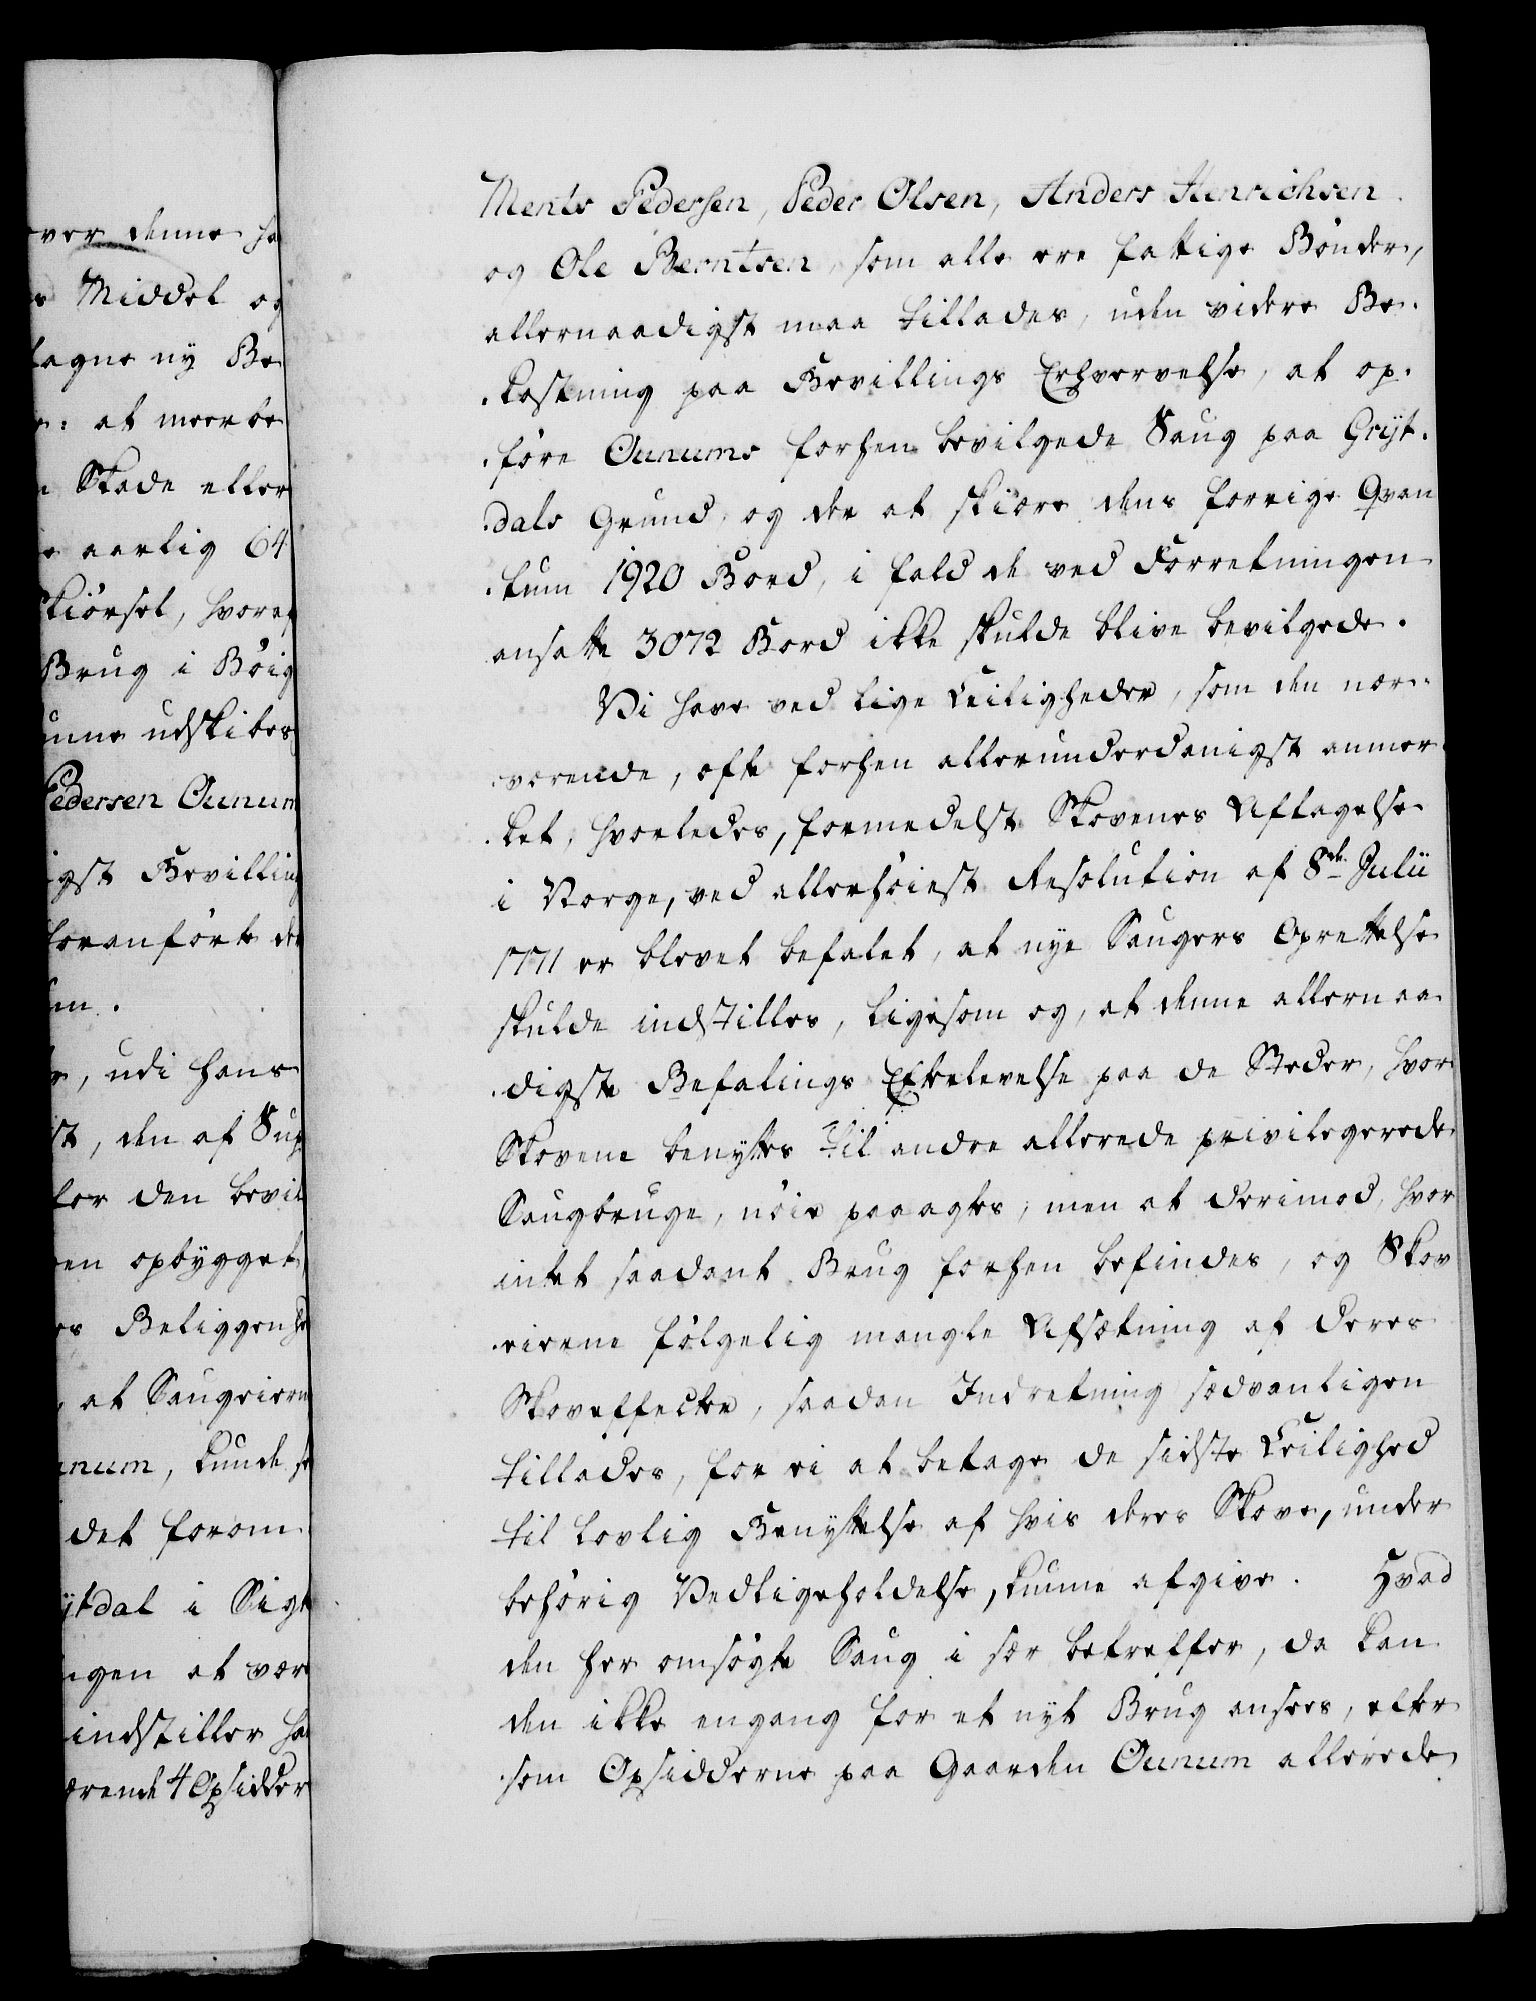 ver denne ha
s Middel og
tagne ny Be
e: at meerbe
n Skade eller
e aarlig 64
Skiørsel, hvoraf
Brug i Bøig
unne udskibes
Pedersen Ounum
igst Bevilling
foranførte de
en.
e, udi hans
st, den af Sup
for den bevil
en opbygget
es Beliggenhe
, at Saugeiern
unum, kunde s
det forom
ytdal i Sigt
ngen at vær
indstiller ha
ærende 4 Opsidder
Ments Pedersen, Peder Olsen, Anders Henrichsen
og Ole Berntsen, som alle ere fattige Bønder,
allernaadigst maa tillades, uden videre Be-
kostning paa Bevillings Erhvervelse, at op-
føre Ounums forhen bevilgede Saug paa Gryt-
dals Grund, og der at skiære dens forrige Qvan
tum 1920 Bord, i fald de ved Forretningen
ansatte 3072 Bord ikke skulde blive bevilgede.
Vi have ved lige Leiligheder, som den nær-
værende, ofte forhen allerunderdanigst anmær-
ket, hvorledes, formedelst Skovenes Aftagelse
i Norge, ved allerhøiest Resolution af 8de Julii
1771 er blevet befalet, at nye Saugers Oprettelse
skulde indstilles, ligesom og, at denne allernaa-
digste Befalings Efterlevelse paa de Steder, hvor
Skovene benyttes til andre allerede privilegerede
Saugbruge, nøie paaagtes; men at derimod, hvor
intet saadant Brug forhen befindes, og Skov
eierne følgelig mangle Afsætning af deres
Skoveffecter, saadan Indretning sædvanligen
tillades, for ei at betage de sidste Leilighed
til lovlig Benyttelse af hvis deres Skove, under
behørig Vedligeholdelse, kunne afgive. Hvad
den her omsøgte Saug i sær betreffer, da kan
den ikke engang for et nyt Brug ansees, efter
som Opsidderne paa Gaarden Ounum allerede